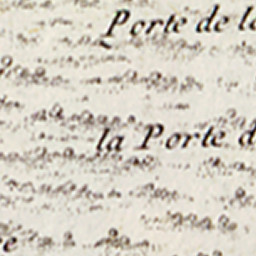 Porte de la
la Porte d
e